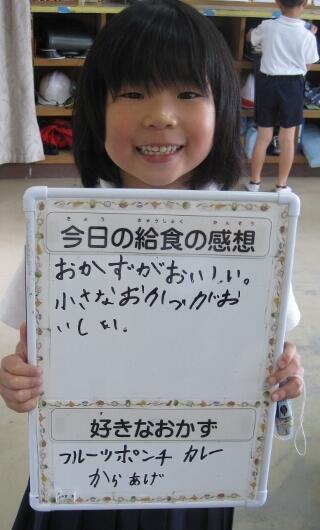 きょう きゅうしょく かんそう
今日の給食の感想
おかずがおいしい。
小さなおかづがお
いしい。
好きなおかず
フルーツポンチ カレー
からあげ